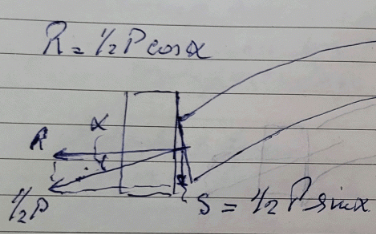 R = ½ P cos α
α
R
½P
S = ½ P sin α